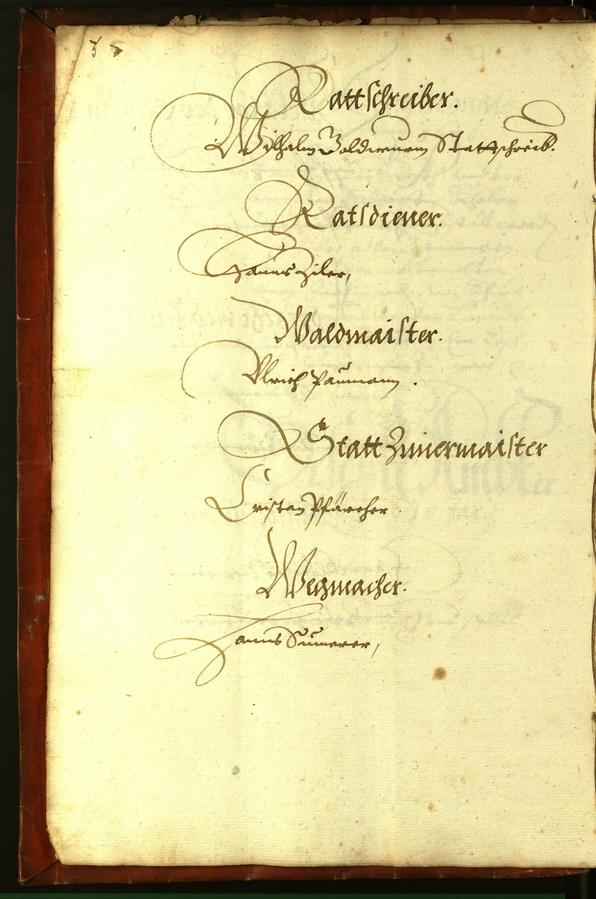 Rattschreiber.
Wilhalm Statschreib.
Ratsdiener.
Hanns Ziler,
Waldmaister.
Vlrich Paumann.
Statt Zimermaister
Cristan Pfärcher
Wegmacher.
Hanns Sumerer,